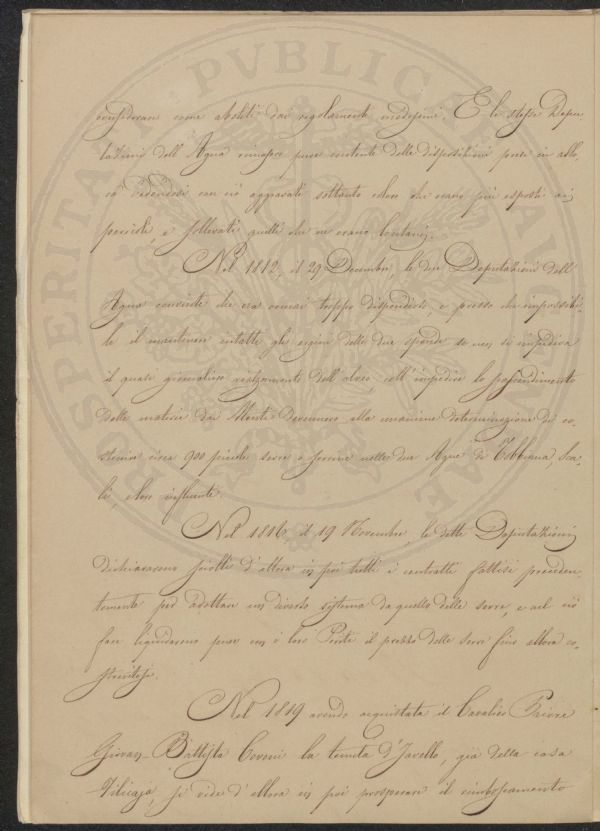 considerare come aboliti dai regolamenti medesimi. E le stesse Depu-
tazioni dell'Agua rimasero pure contente delle disposizioni prese in allo-
ra vedendosi con ciò aggravati soltanto coloro che erano più esposti ai
pericoli, e sollevati quelli che ne erano lontani.
Nel 1812, il 29 Decembre, le due Deputazioni dell'
Agua convinte che era oramai troppo dispendioso, e presso che impossibi-
le il mantenere intatti gli argini delle due sponde se non si impediva
il quasi giornaliero rialzamento dell'alveo, coll'impedire lo scoscendimento
delle materie dai Monti devennero alla unanime determinazione di co-
struire circa 900 piccole serre o serrine nelle due Ague di Tobbiana, Sca-
li, e loro influente.
Nel 1816 il 19 Novembre, le dette Deputazioni
dichiararono sciolti d'allora in poi tutti i contratti fattisi preceden-
temente per adottare un diverso sistema da quello delle serre, e ad ciò
fare liquidarono pure con i loro il prezzo delle serre fino allora co-
struitesi.
Nel 1819 avendo acquistata il Cavalier Priore
Giovan-Battista Covoni la tenuta d'Javello, già della casa
Filicaja, si vide d'allora in poi prosperare il rimboscamento